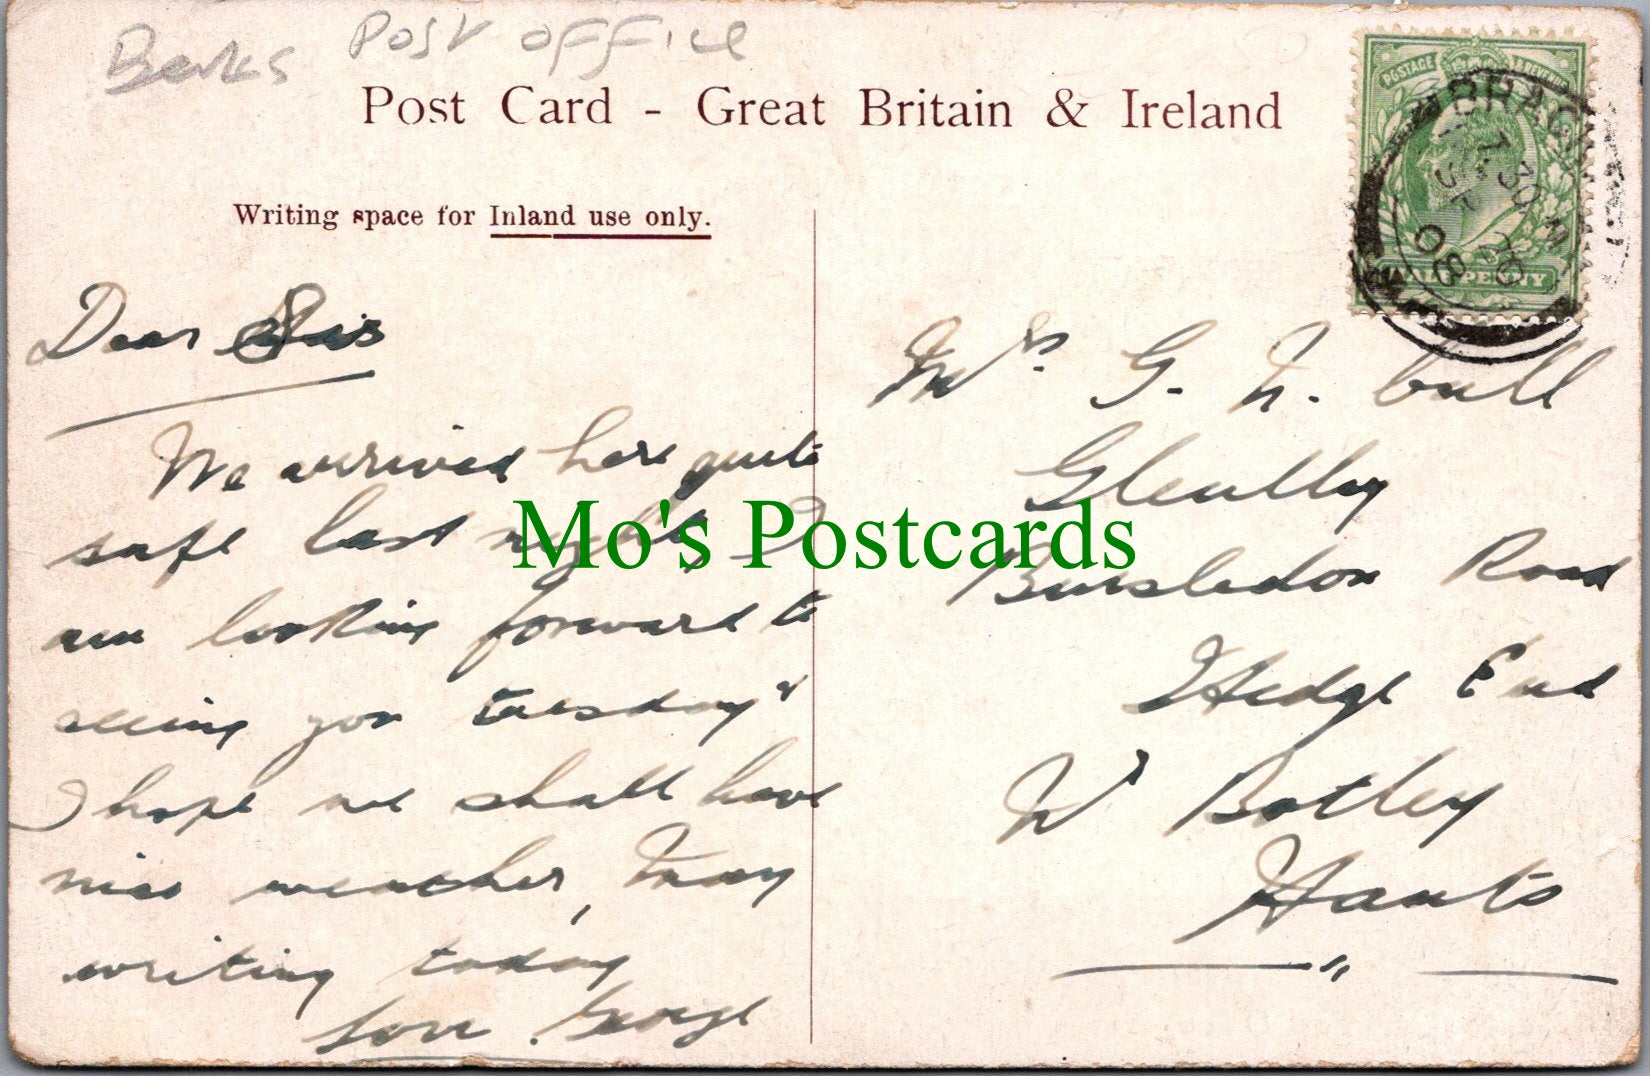 Berks Post Office
Post Card - Great Britain & Ireland
POSTAGE & REVENUE
HALFPENNY
7.30
08
Writing space for Inland use only.
Dear Sis
We arrived here quite
safe last night, I
am looking forward to
seeing you tuesday &
I hope we shall have
nice weather, May
writing today
love George
Mrs. G. N. bull
Burseldon Road
Hedge End
Nr Botley
Hants
Mo's Postcards